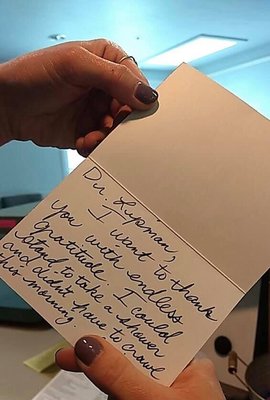 Dr. Lipman,
I want to thank
you with endless
gratitude. I could
stand to take a shower
and didn't have to crawl
this morning.